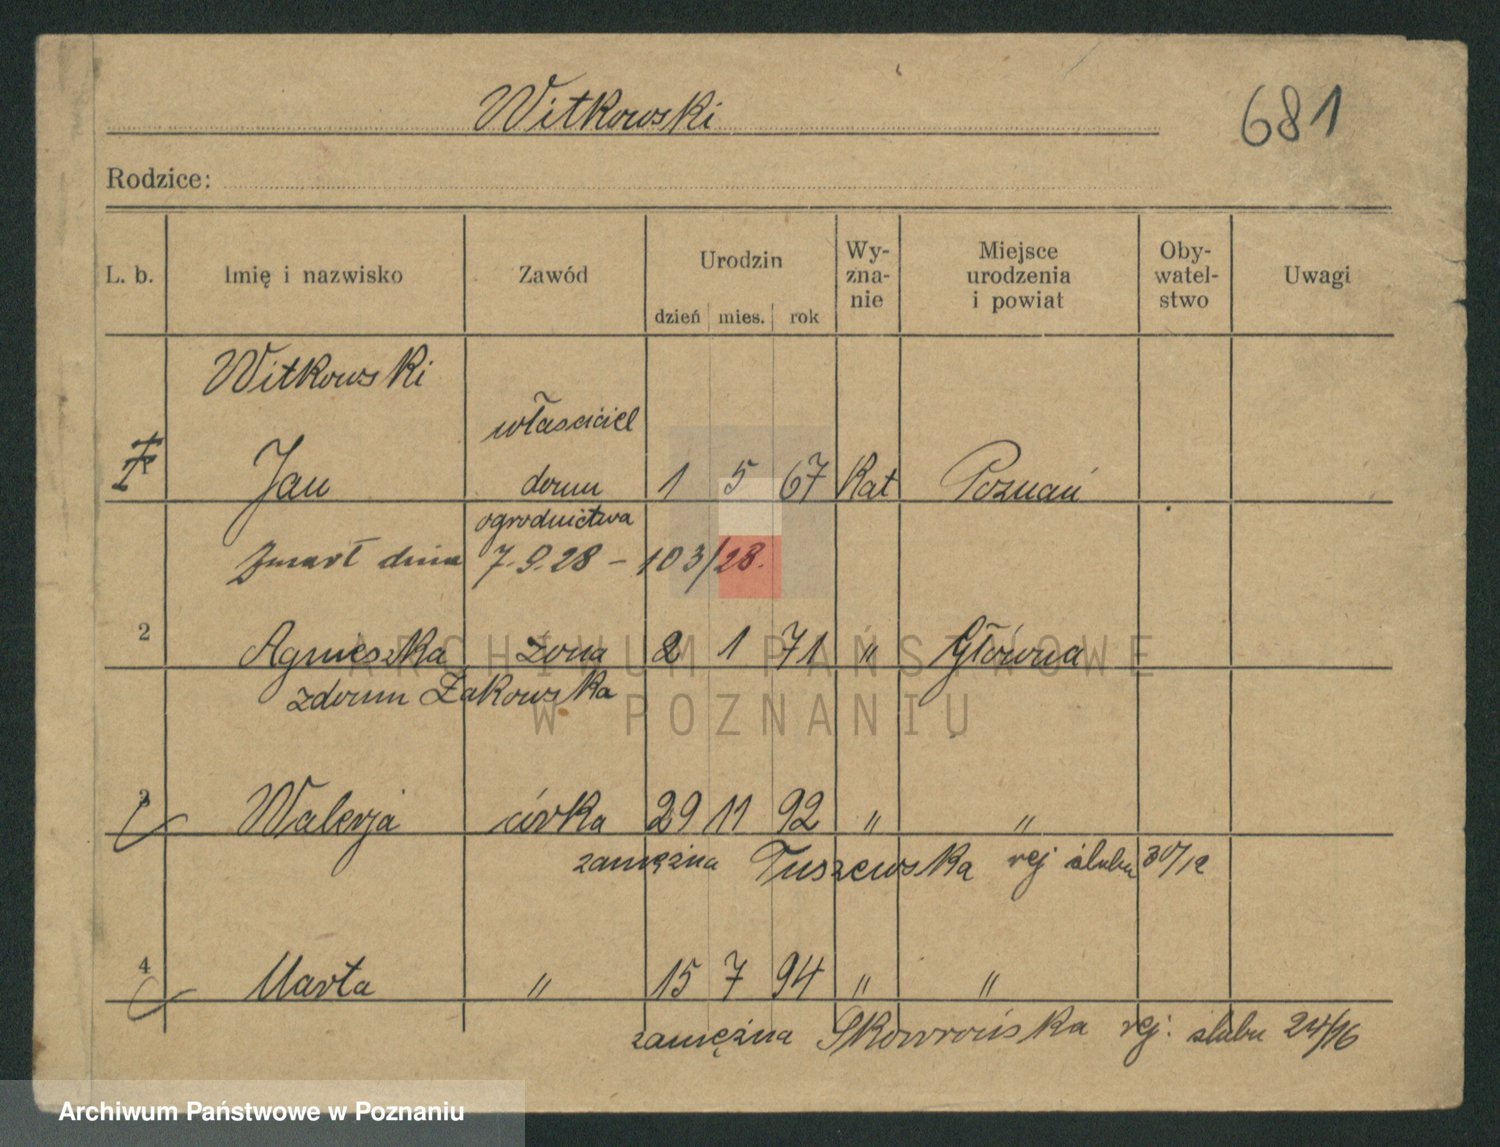 Witkowski
681
Rodzice:
L. b. Imię i nazwisko Zawód Urodzin dzień mies. rok Wy-zna-nie Miejsce urodzenia i powiat Oby-watel-stwo Uwagi
Witkowski
właściciel
1 Jan domu 1 5 67 Kat Poznań
ogrodnictwa
Zmarł dnia 7.9.28 – 103/28.
2 Agnieszka żona 2 1 71 " Główna
zdomu Żakowska
3 Walerja córka 29 11 92 " "
zamężna Tuszewska rej ślubu 30/12
4 Marta " 15 7 94 " "
zamężna Skowrońska rej: ślubu 24/16
ARCHIWUM PAŃSTWOWE
W POZNANIU
Archiwum Państwowe w Poznaniu